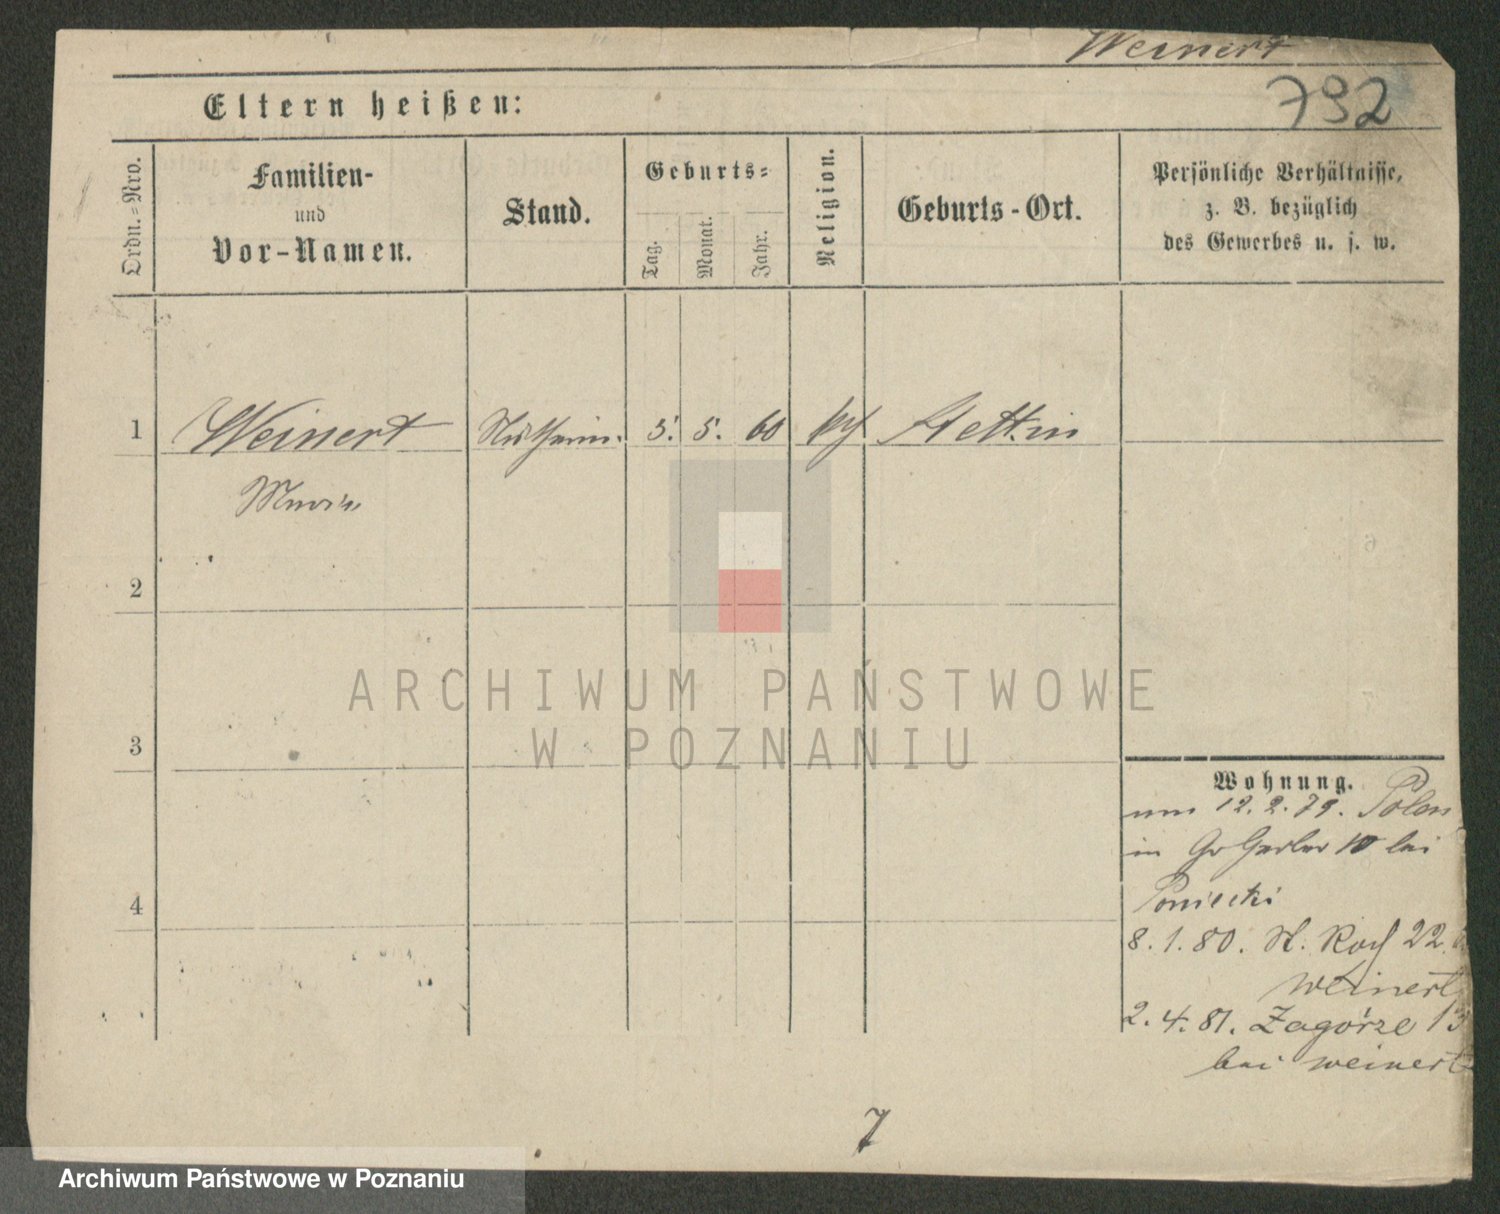 Weinert
792
Eltern heißen:
Ordn.=Nro.
Familien-
und
Vor-Namen.
Stand.
Geburts=
Tag.
Monat.
Jahr.
Religion.
Geburts-Ort.
Persönliche Verhältnisse,
z. B. bezüglich
des Gewerbes u. s. w.
1
Weinert
5. 5. 60
Stettin
Maria
2
3
4
ARCHIWUM PAŃSTWOWE
W POZNANIU
Wohnung.
12. 2. 79. Polen
in Gr Gerber 10 bei
Poniecki
8. 1. 80. St. Roch 22
Weinert
2. 4. 81. Zagórze 13
bei Weinert
7
Archiwum Państwowe w Poznaniu